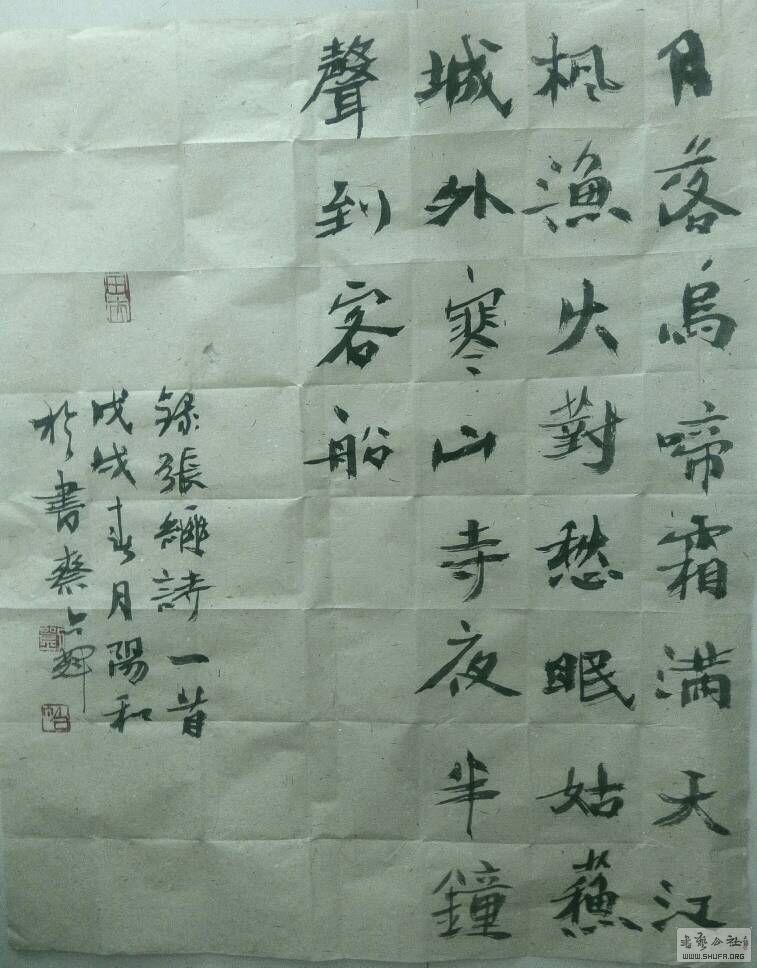 月落烏啼霜满天江
枫漁火對愁眠姑蘇
城外寒山寺夜半鐘
聲到客船
錄張繼詩一首
戊戌春月陽和
於書齋
WWW.SHUFA.ORG